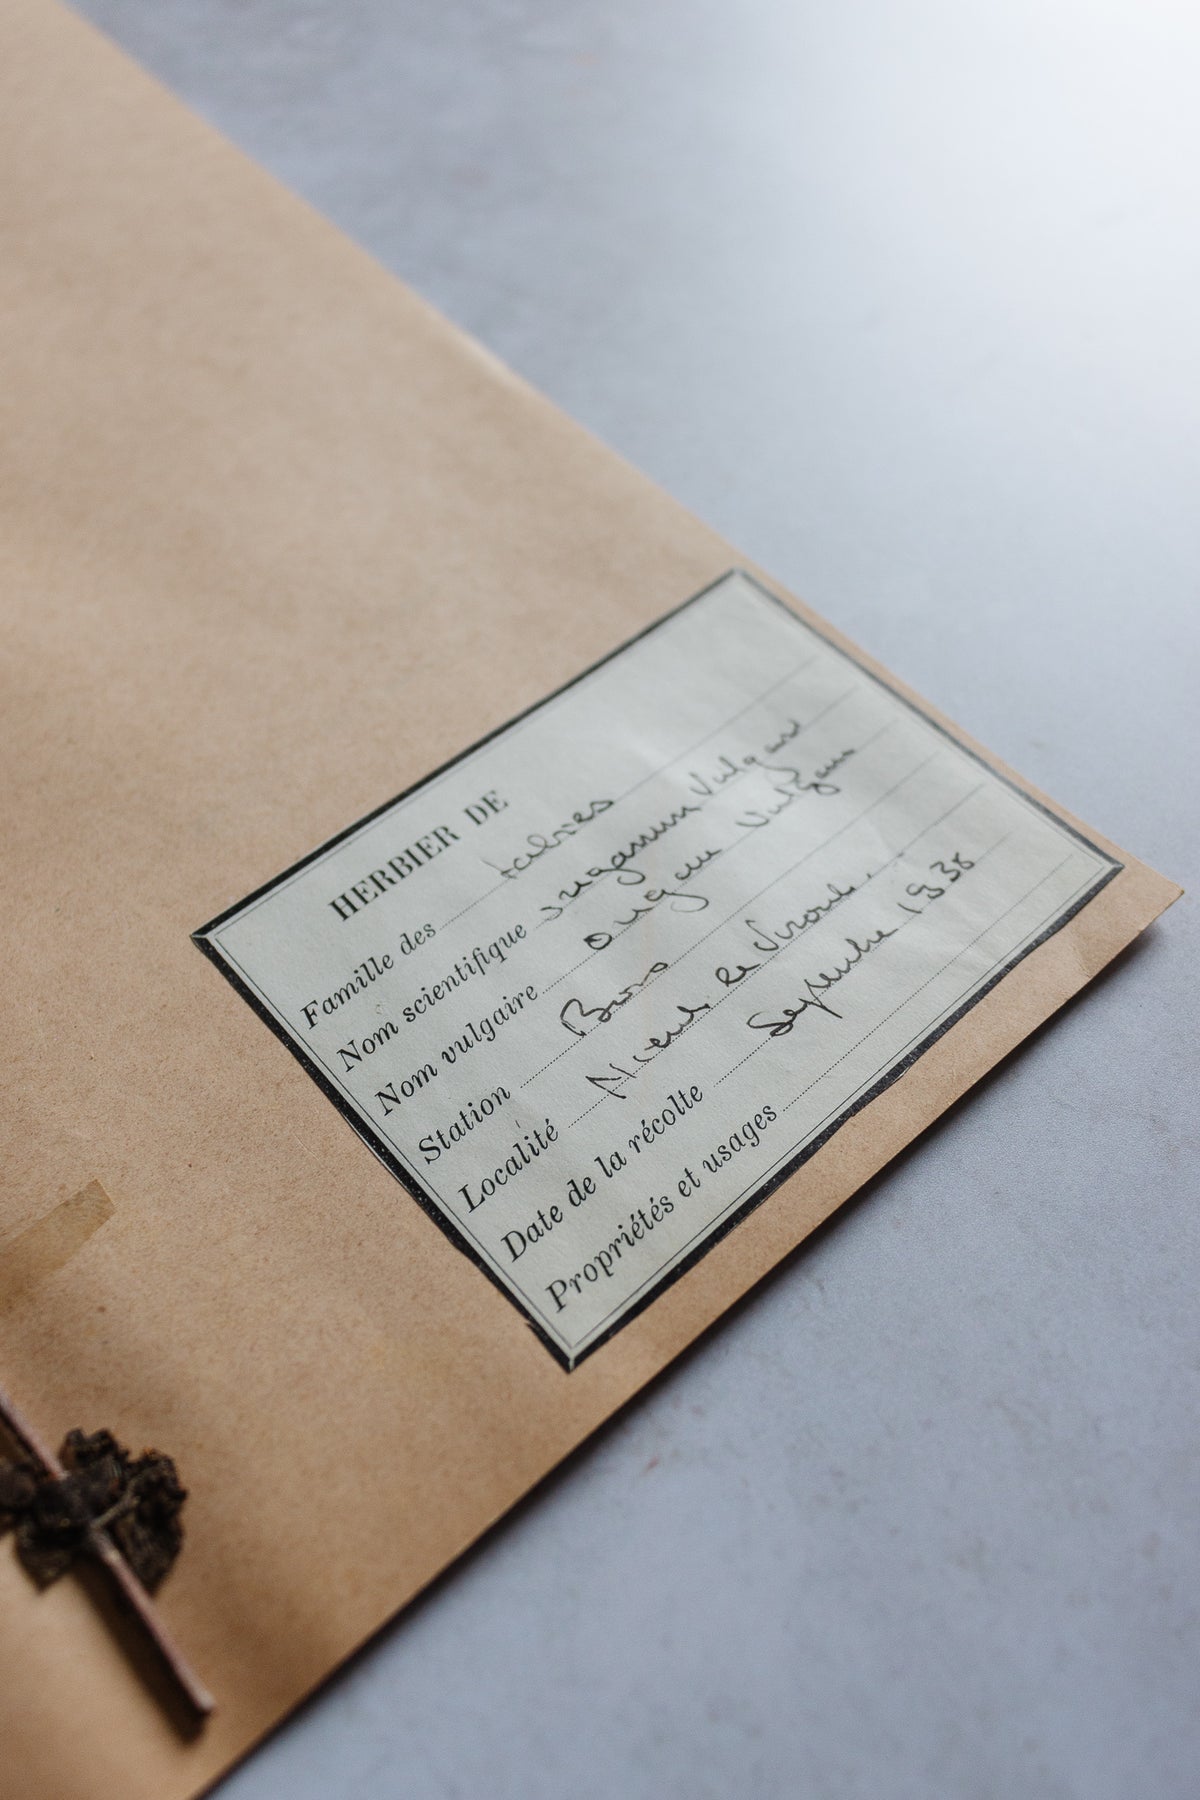 HERBIER DE
Famille des
Nom scientifique origanum Vulgare
Nom vulgaire origan Vulgaire
Station Bois
Localité
Date de la récolte Septembre 1938
Propriétés et usages